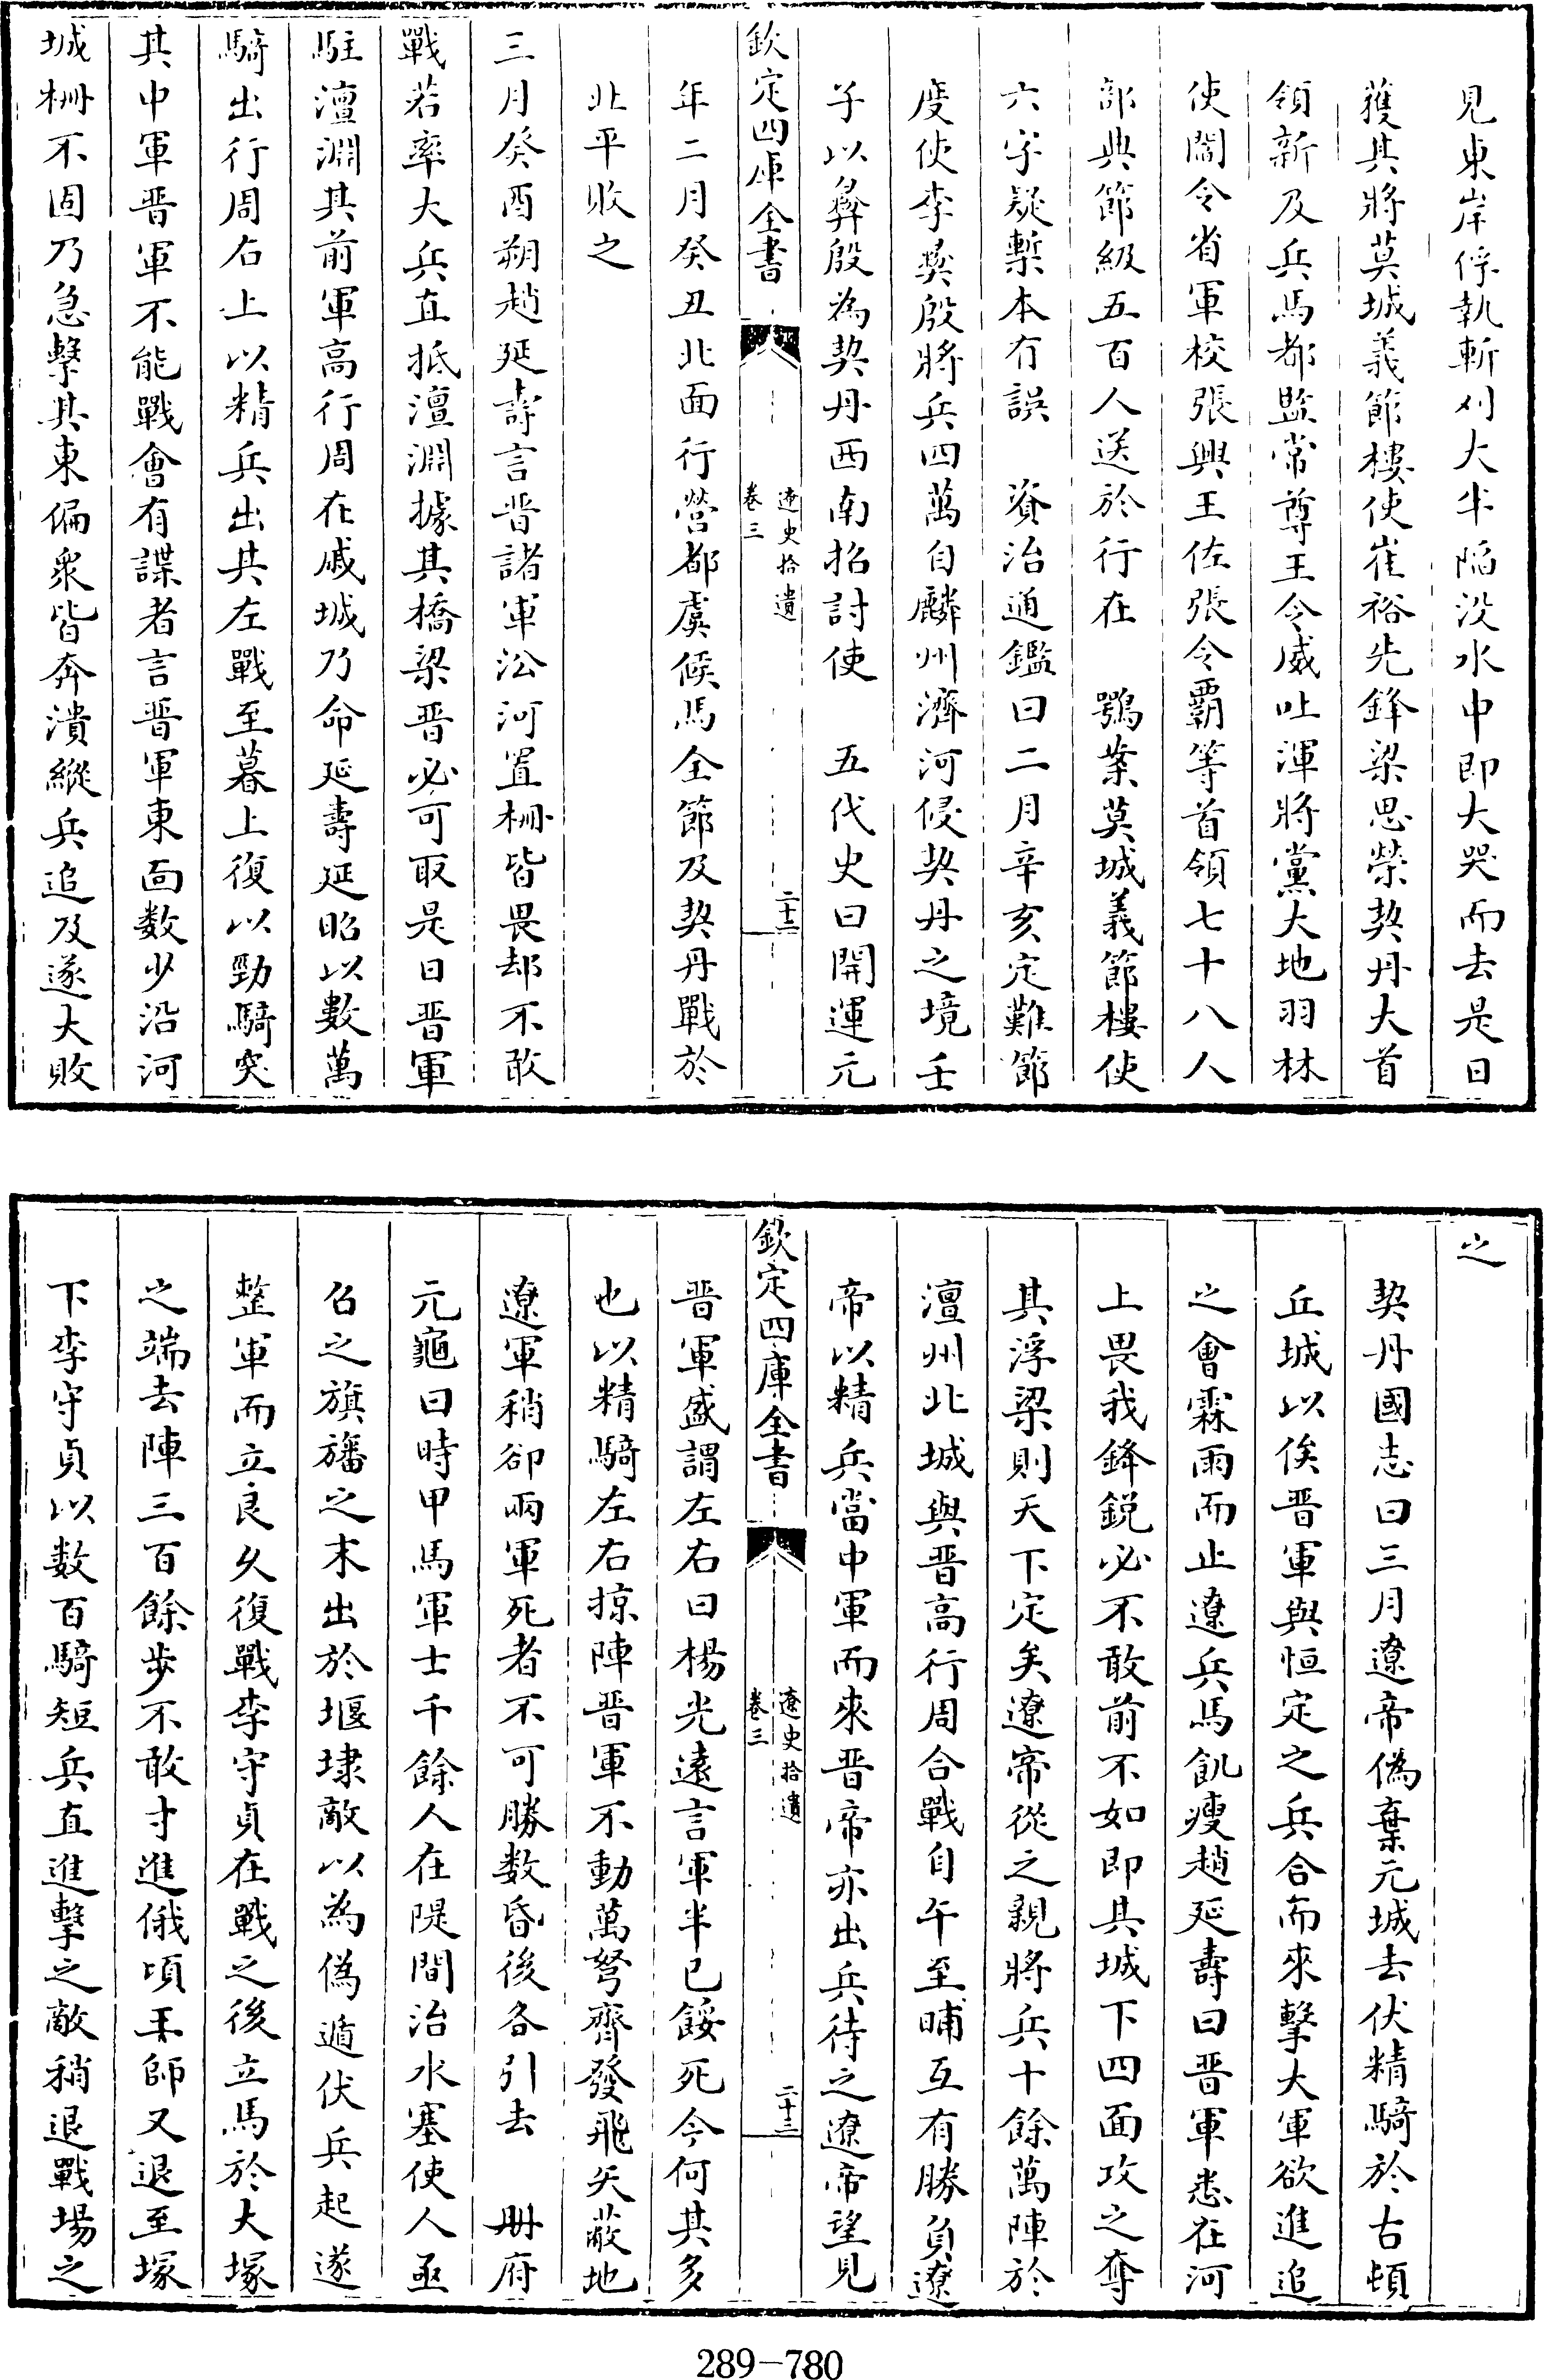 見東岸俘執斬刈大半陷没水中即大哭而去是日
獲其將莫城義節樓使崔裕先鋒梁思榮契丹大首
領新及兵馬都監常尊王令威吐渾將黨大地羽林
使閤令省軍校張興王佐張令霸等首領七十八人
部典節級五百人送於行在　鶚案莫城義節樓使
六字疑槧本有誤　資治通鑑曰二月辛亥定難節
度使李彛殷將兵四萬自麟州濟河侵契丹之境壬
子以彛殷為契丹西南招討使　五代史曰開運元
欽定四庫全書
遼史拾遺
卷三
二十三
年二月癸丑北面行營都虞候馬全節及契丹戰於
北平敗之
三月癸酉朔趙延壽言晋諸軍沿河置栅皆畏却不敢
戰若率大兵直抵澶淵據其橋梁晋必可取是日晋軍
駐澶淵其前軍高行周在戚城乃命延壽延昭以數萬
騎出行周右上以精兵出其左戰至暮上復以勁騎突
其中軍晋軍不能戰會有諜者言晋軍東面数少沿河
城栅不固乃急擊其東偏衆皆奔潰縱兵追及遂大敗
之
契丹國志曰三月遼帝偽棄元城去伏精騎於古頓
丘城以俟晋軍與恒定之兵合而來擊大軍欲進追
之會霖雨而止遼兵馬飢瘦趙延壽曰晋軍悉在河
上畏我鋒鋭必不敢前不如即其城下四面攻之奪
其浮梁則天下定矣遼帝從之親將兵十餘萬陣於
澶州北城與晋高行周合戰自午至晡互有勝負遼
帝以精兵當中軍而來晋帝亦出兵待之遼帝望見
欽定四庫全書
遼史拾遺
卷三
二十三
晋軍盛謂左右曰楊光遠言軍半已餒死今何其多
也以精騎左右掠陣晋軍不動萬弩齊發飛矢蔽地
遼軍稍卻兩軍死者不可勝数昏後各引去　册府
元龜曰時甲馬軍士千餘人在隄間治水塞使人亟
召之旗旛之末出於堰埭敵以為偽遁伏兵起遂
整軍而立良久復戰李守貞在戰之後立馬於大塚
之端去陣三百餘步不敢寸進俄頃王師又退至塚
下李守貞以数百騎短兵直進擊之敵稍退戰場之
289-780